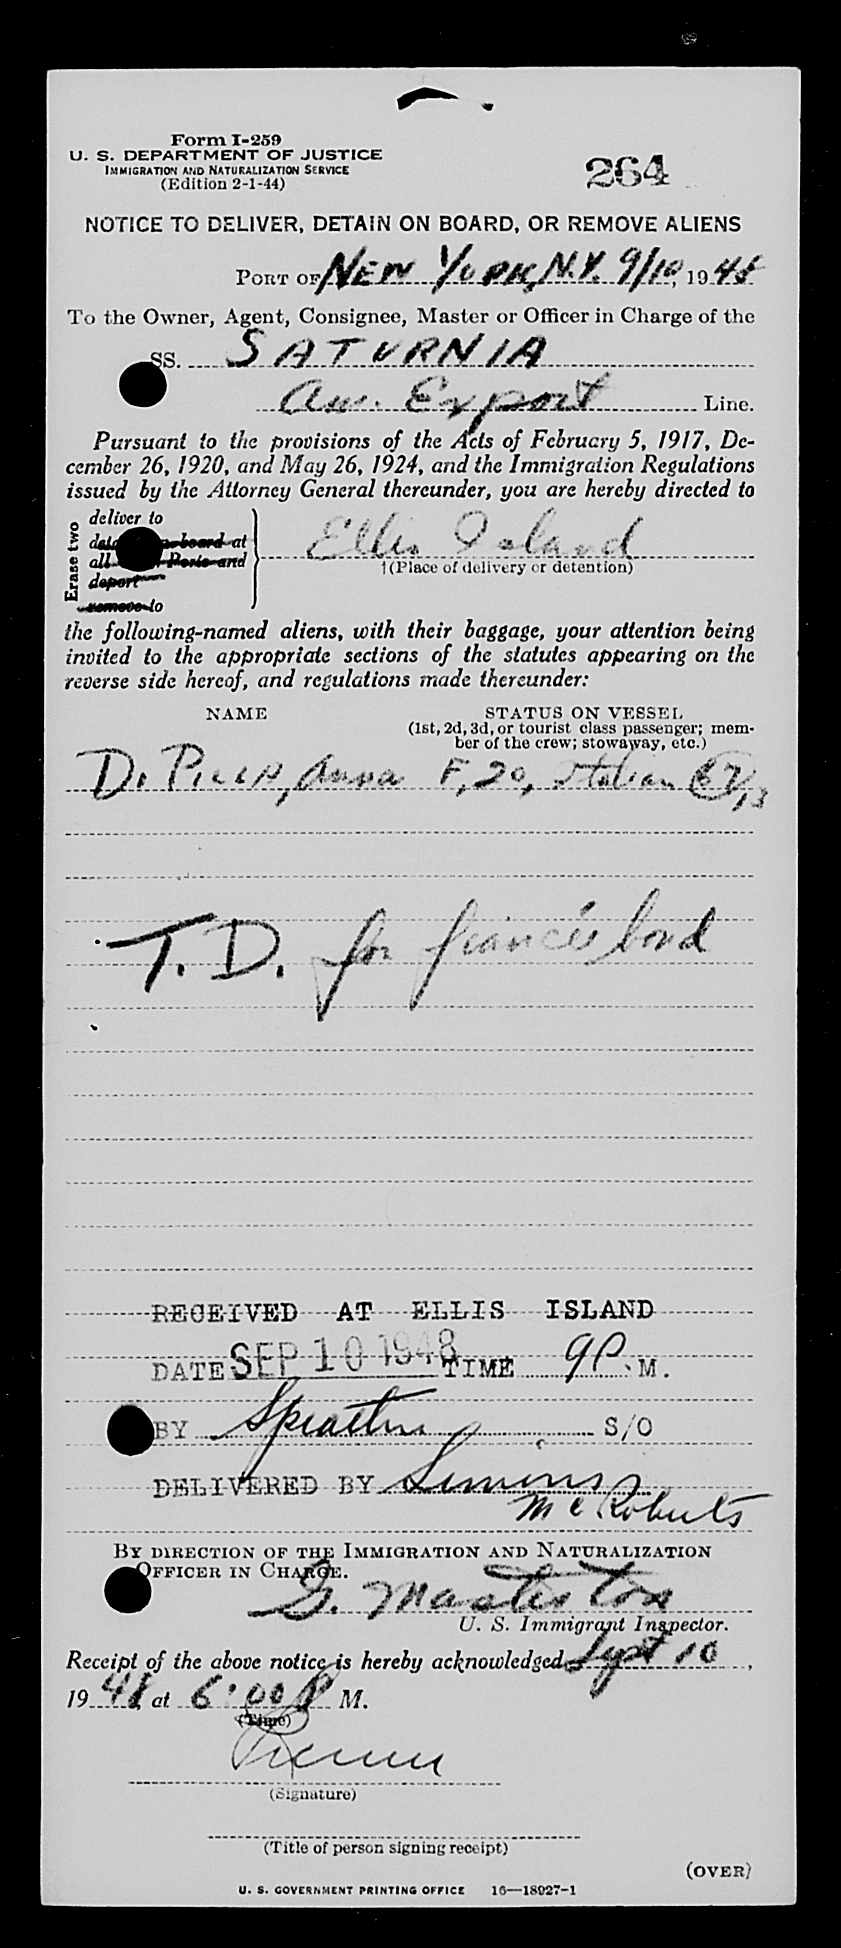 Form I-259
U. S. DEPARTMENT OF JUSTICE
IMMIGRATION AND NATURALIZATION SERVICE
(Edition 2-1-44)
264
NOTICE TO DELIVER, DETAIN ON BOARD, OR REMOVE ALIENS
PORT OF NEW YORK, N.Y. 9/10, 1948
To the Owner, Agent, Consignee, Master or Officer in Charge of the
SS. SATURNIA
Am. Export Line.
Pursuant to the provisions of the Acts of February 5, 1917, De-
cember 26, 1920, and May 26, 1924, and the Immigration Regulations
issued by the Attorney General thereunder, you are hereby directed to
Erase two
deliver to
board at
all Ports and
deport
remove to
Ellis Island
†(Place of delivery or detention)
the following-named aliens, with their baggage, your attention being
invited to the appropriate sections of the statutes appearing on the
reverse side hereof, and regulations made thereunder:
NAME
STATUS ON VESSEL
(1st, 2d, 3d, or tourist class passenger; mem-
ber of the crew; stowaway, etc.)
Di Pilla, Anna F, 20, Italian 67/13
T. D. for fiance's bond
RECEIVED AT ELLIS ISLAND
DATE SEP 10 1948 TIME 9 P. M.
BY S/O
DELIVERED BY Simins
McRoberts
BY DIRECTION OF THE IMMIGRATION AND NATURALIZATION
OFFICER IN CHARGE.
G. Masterton
U. S. Immigrant Inspector.
Receipt of the above notice is hereby acknowledged Sept 10,
1948 at 6:00 P M.
(Time)
(Signature)
(Title of person signing receipt)
(OVER)
U. S. GOVERNMENT PRINTING OFFICE 16—18927-1